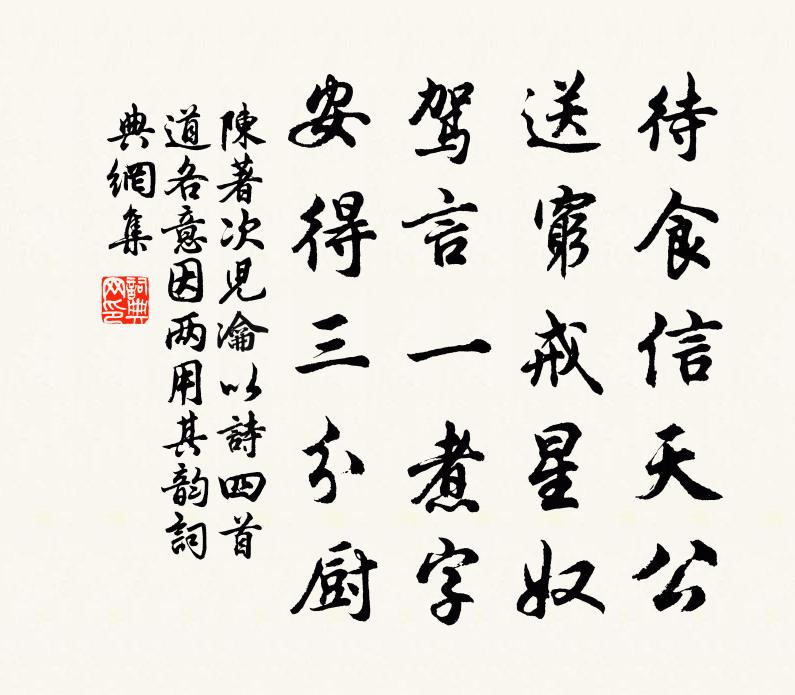 待食信天公
送窮戒星奴
駕言一煮字
安得三分厨
陳著次兒瀹以詩四首
道各意因两用其韵詞
典網集
詞典网印